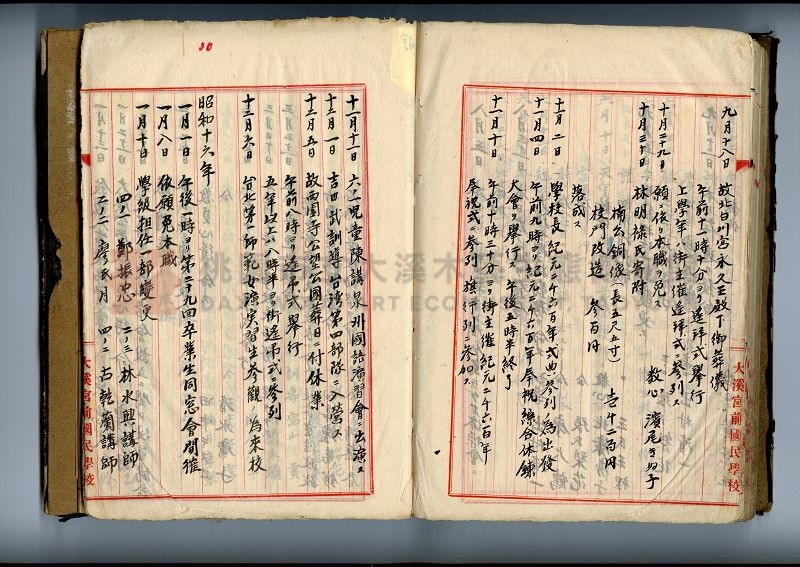 九月十八日 故北白川宮永久王殿下御葬儀
午前十一時十分ヨリ遙拜式舉行
上學年ハ街主催遙拜式ニ參列ス
十月二十九日 願ニ依リ本職ヲ免ス 教心 濱尾きぬ子
十月三十日 林明條氏寄附
楠公銅像(長五尺五寸) 壱千二百円
校門改造 參百円
落成ス
十一月二日 學校長紀元二千六百年式典ニ參列ノ為出發
十一月四日 午前九時ヨリ紀元二千六百年奉祝綜合体鍊
大會ヲ舉行ス 午後五時半終了
十一月十日 午前十時三十分ヨリ街主催紀元二千六百年
奉祝式ニ參列 旗行列ニ參加ス
大溪宮前國民學校
30
十二月十一日 六ノ一児童陳講泉州國語演習會ニ出演ス
十二月一日 吉田武訓導台灣第四部隊ニ入營ス
十二月五日 故西園寺公望公國葬日ニ付休業
午前八時ヨリ遙吊式舉行
五年以上ハ八時半ヨリ街遙吊式ニ參列
十二月六日 台北第一師範女演實習生參觀ノ為來校
昭和十六年
一月一日 午後一時ヨリ第二十九回卒業生同窓會開催
一月八日 依願免本職
一月十日 學級担任一部變更
四ノ一 鄭振忠 二ノ三 林水興講師
二ノ二 廖氏月 四ノ二 古乾蘭講師
大溪宮前國民學校